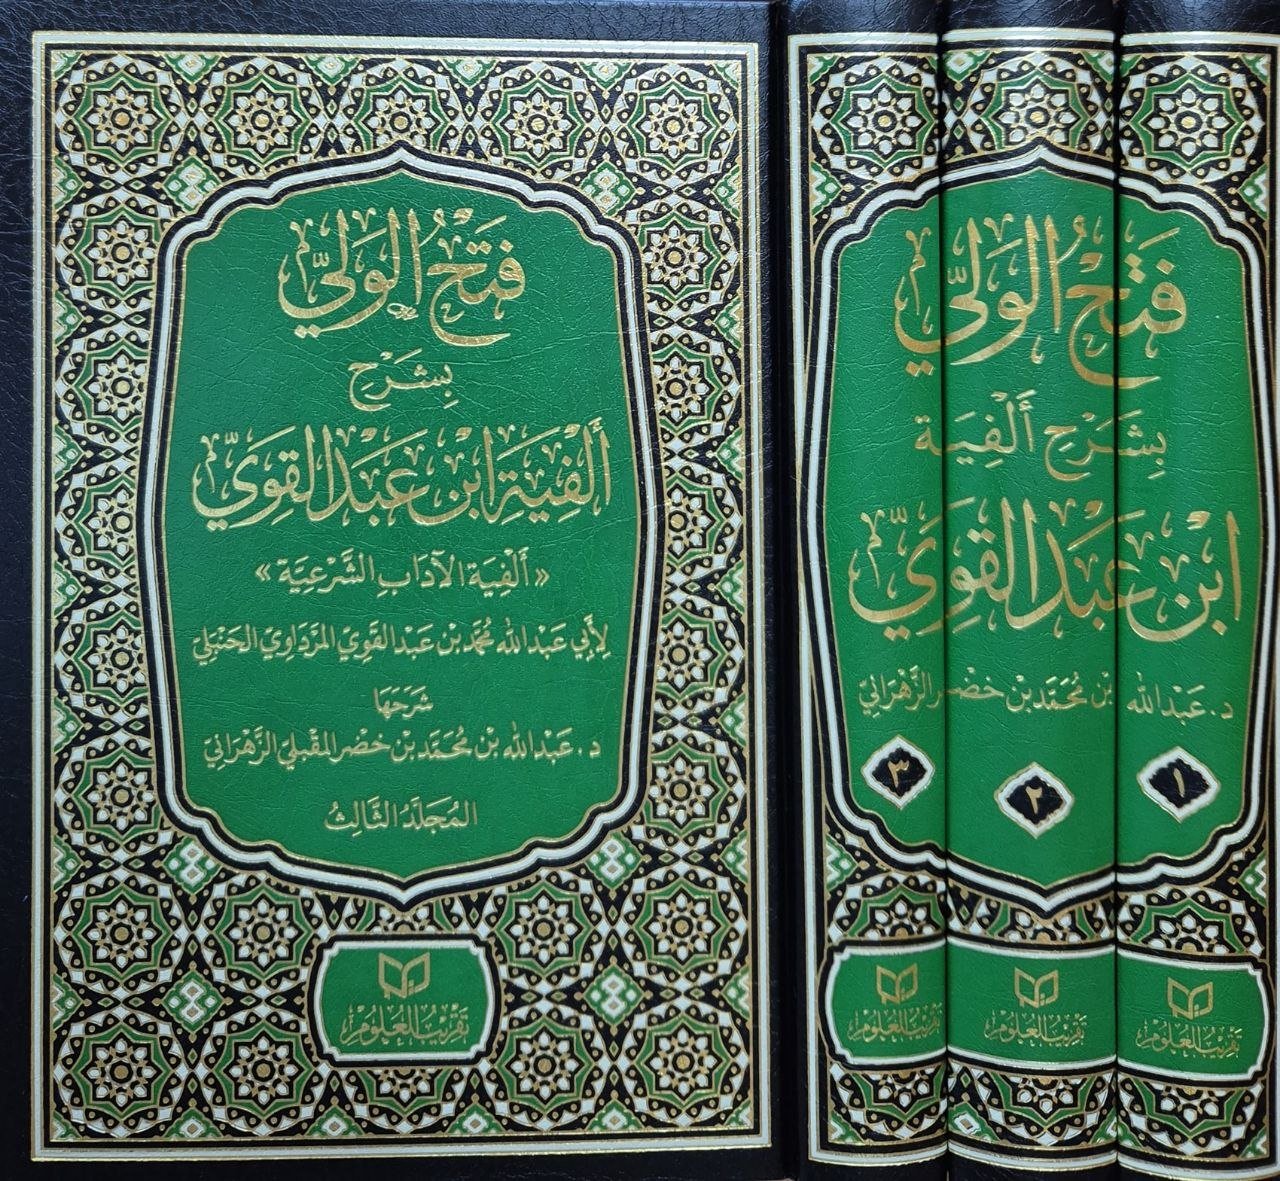 فَتْحُ الوَلِيِّ
بِشَرْحِ
أَلْفِيَّةِ ابْنِ عَبْدِ القَوِيِّ
«أَلْفِيَّةِ الآدَابِ الشَّرْعِيَّةِ»
لِأَبِي عَبْدِ اللهِ مُحَمَّدِ بْنِ عَبْدِ القَوِيِّ المَرْدَاوِيِّ الحَنْبَلِيِّ
شَرَحَهَا
د. عَبْدُ اللهِ بْنُ مُحَمَّدِ بْنِ خَضِرٍ المُقْبِلِيُّ الزَّهْرَانِيُّ
المُجَلَّدُ الثَّالِثُ
تَقْرِيبُ العُلُومِ
فَتْحُ الوَلِيِّ
بِشَرْحِ أَلْفِيَّةِ
ابْنِ عَبْدِ القَوِيِّ
د. عَبْدُ اللهِ بْنُ مُحَمَّدِ بْنِ خَضِرٍ الزَّهْرَانِيُّ
١
٢
٣
تَقْرِيبُ العُلُومِ
تَقْرِيبُ العُلُومِ
تَقْرِيبُ العُلُومِ